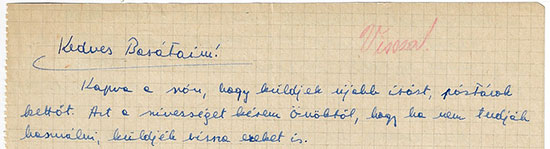 Vissza!
Kedves Barátaim!
Kapva a szón, hogy küldjek újabb írást, póstázok
kettőt. Azt a szívességet kérem Önöktől, hogy ha nem tudják
használni, küldjék vissza ezeket is.